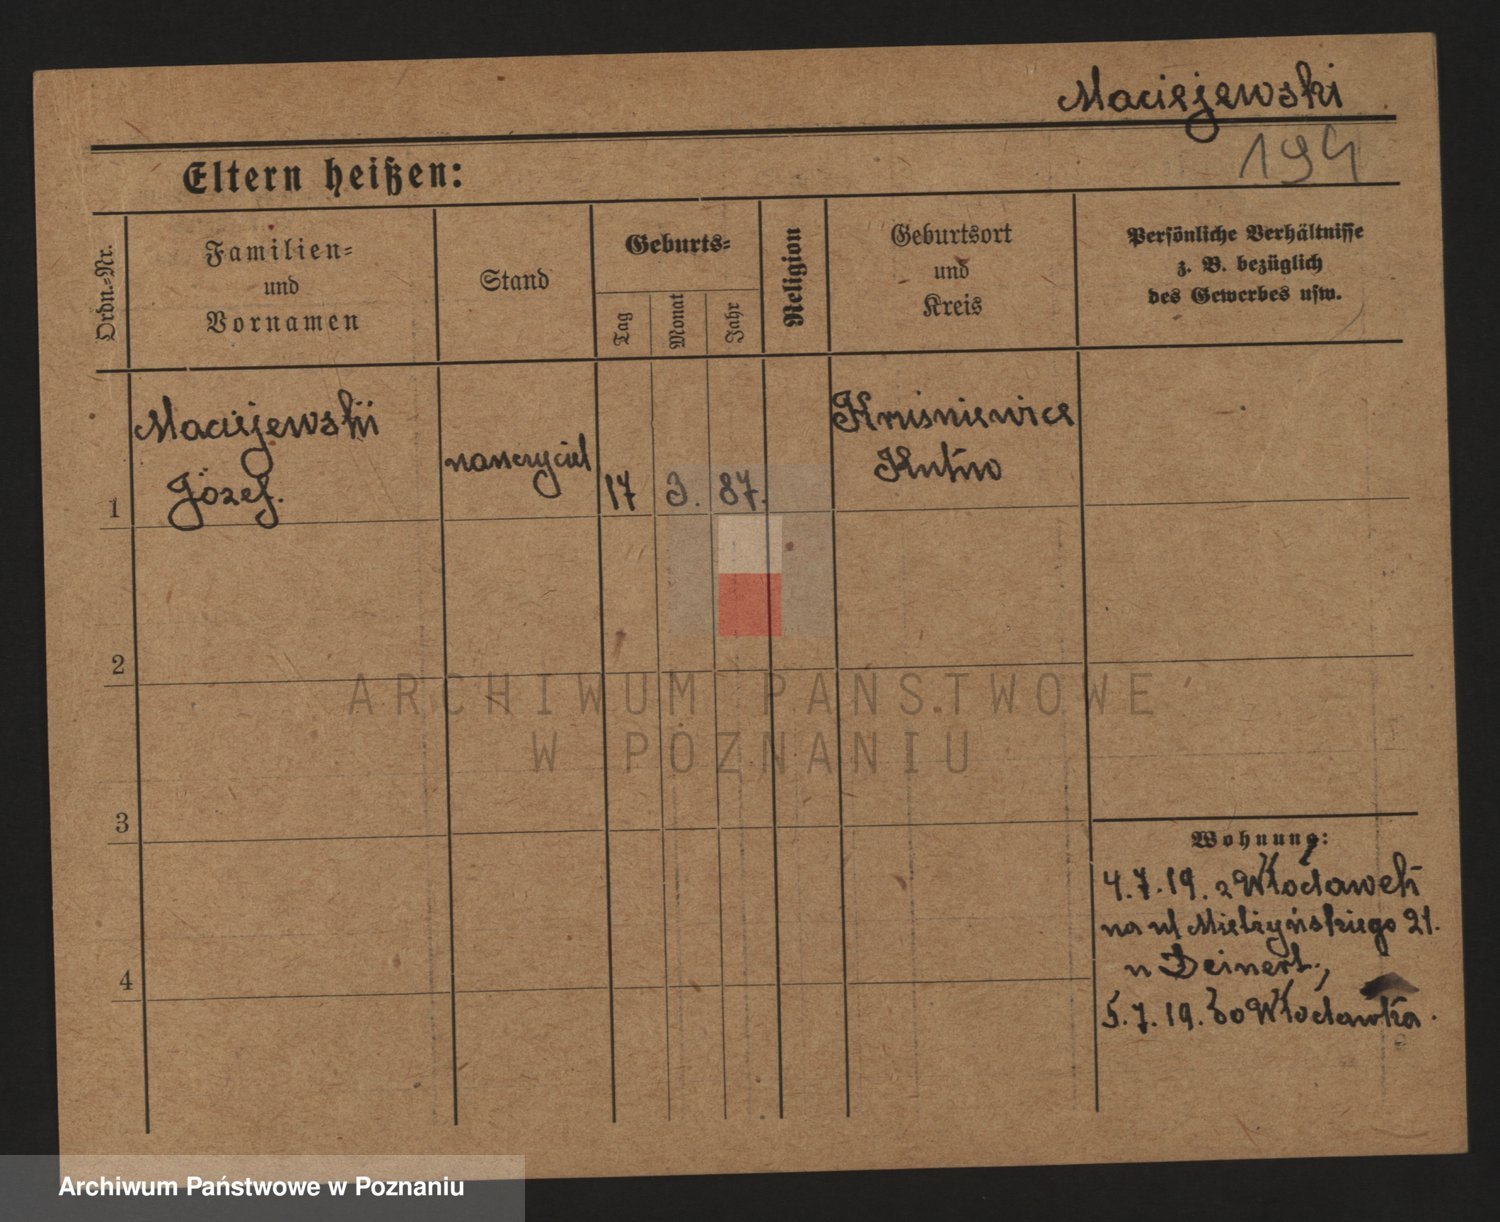 Maciejewski
194
Eltern heißen:
Ordn.-Nr.
Familien-
und
Vornamen
Stand
Geburts-
Tag
Monat
Jahr
Religion
Geburtsort
und
Kreis
Persönliche Verhältnisse
z. B. bezüglich
des Gewerbes usw.
1
Maciejewski
Józef.
nauczyciel
17
3.
87.
Kruśniewice
Kutno
2
3
4
Wohnung:
4.7.19. z Włocławek
na ul Mielżyńskiego 21.
u Deinert,
5.7.19. do Włocławka.
ARCHIWUM PAŃSTWOWE
W POZNANIU
Archiwum Państwowe w Poznaniu